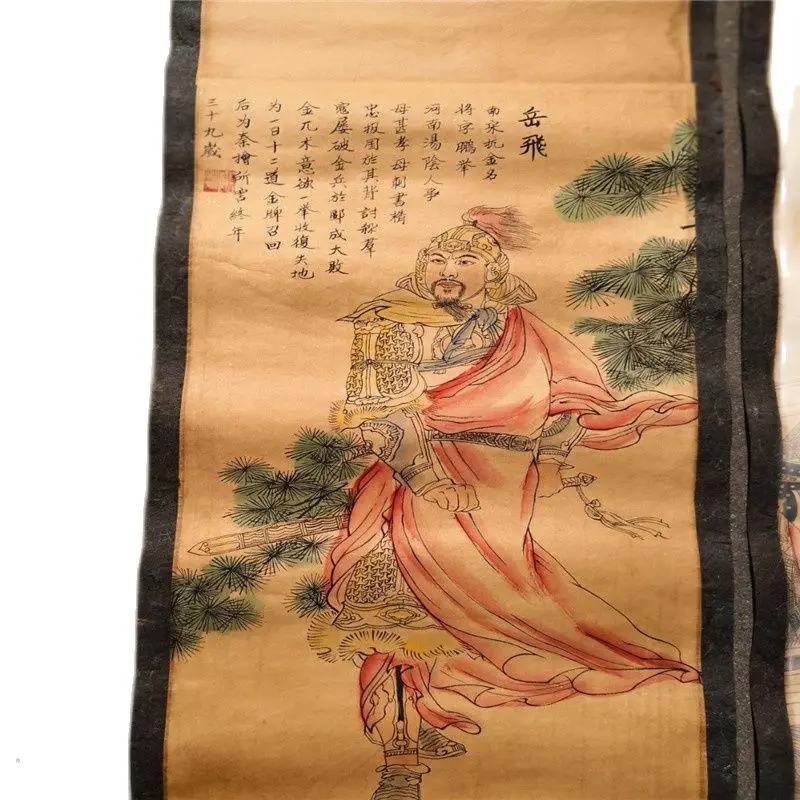 岳飛
南宋抗金名
将字鹏举
河南湯陰人事
母甚孝母刺書精
忠报国於其背討秋羣
寇屡破金兵於郾成大敗
金兀术意欲一举收復失地
为一日十二道金牌召回
后为秦檜所害終年
三十九歲